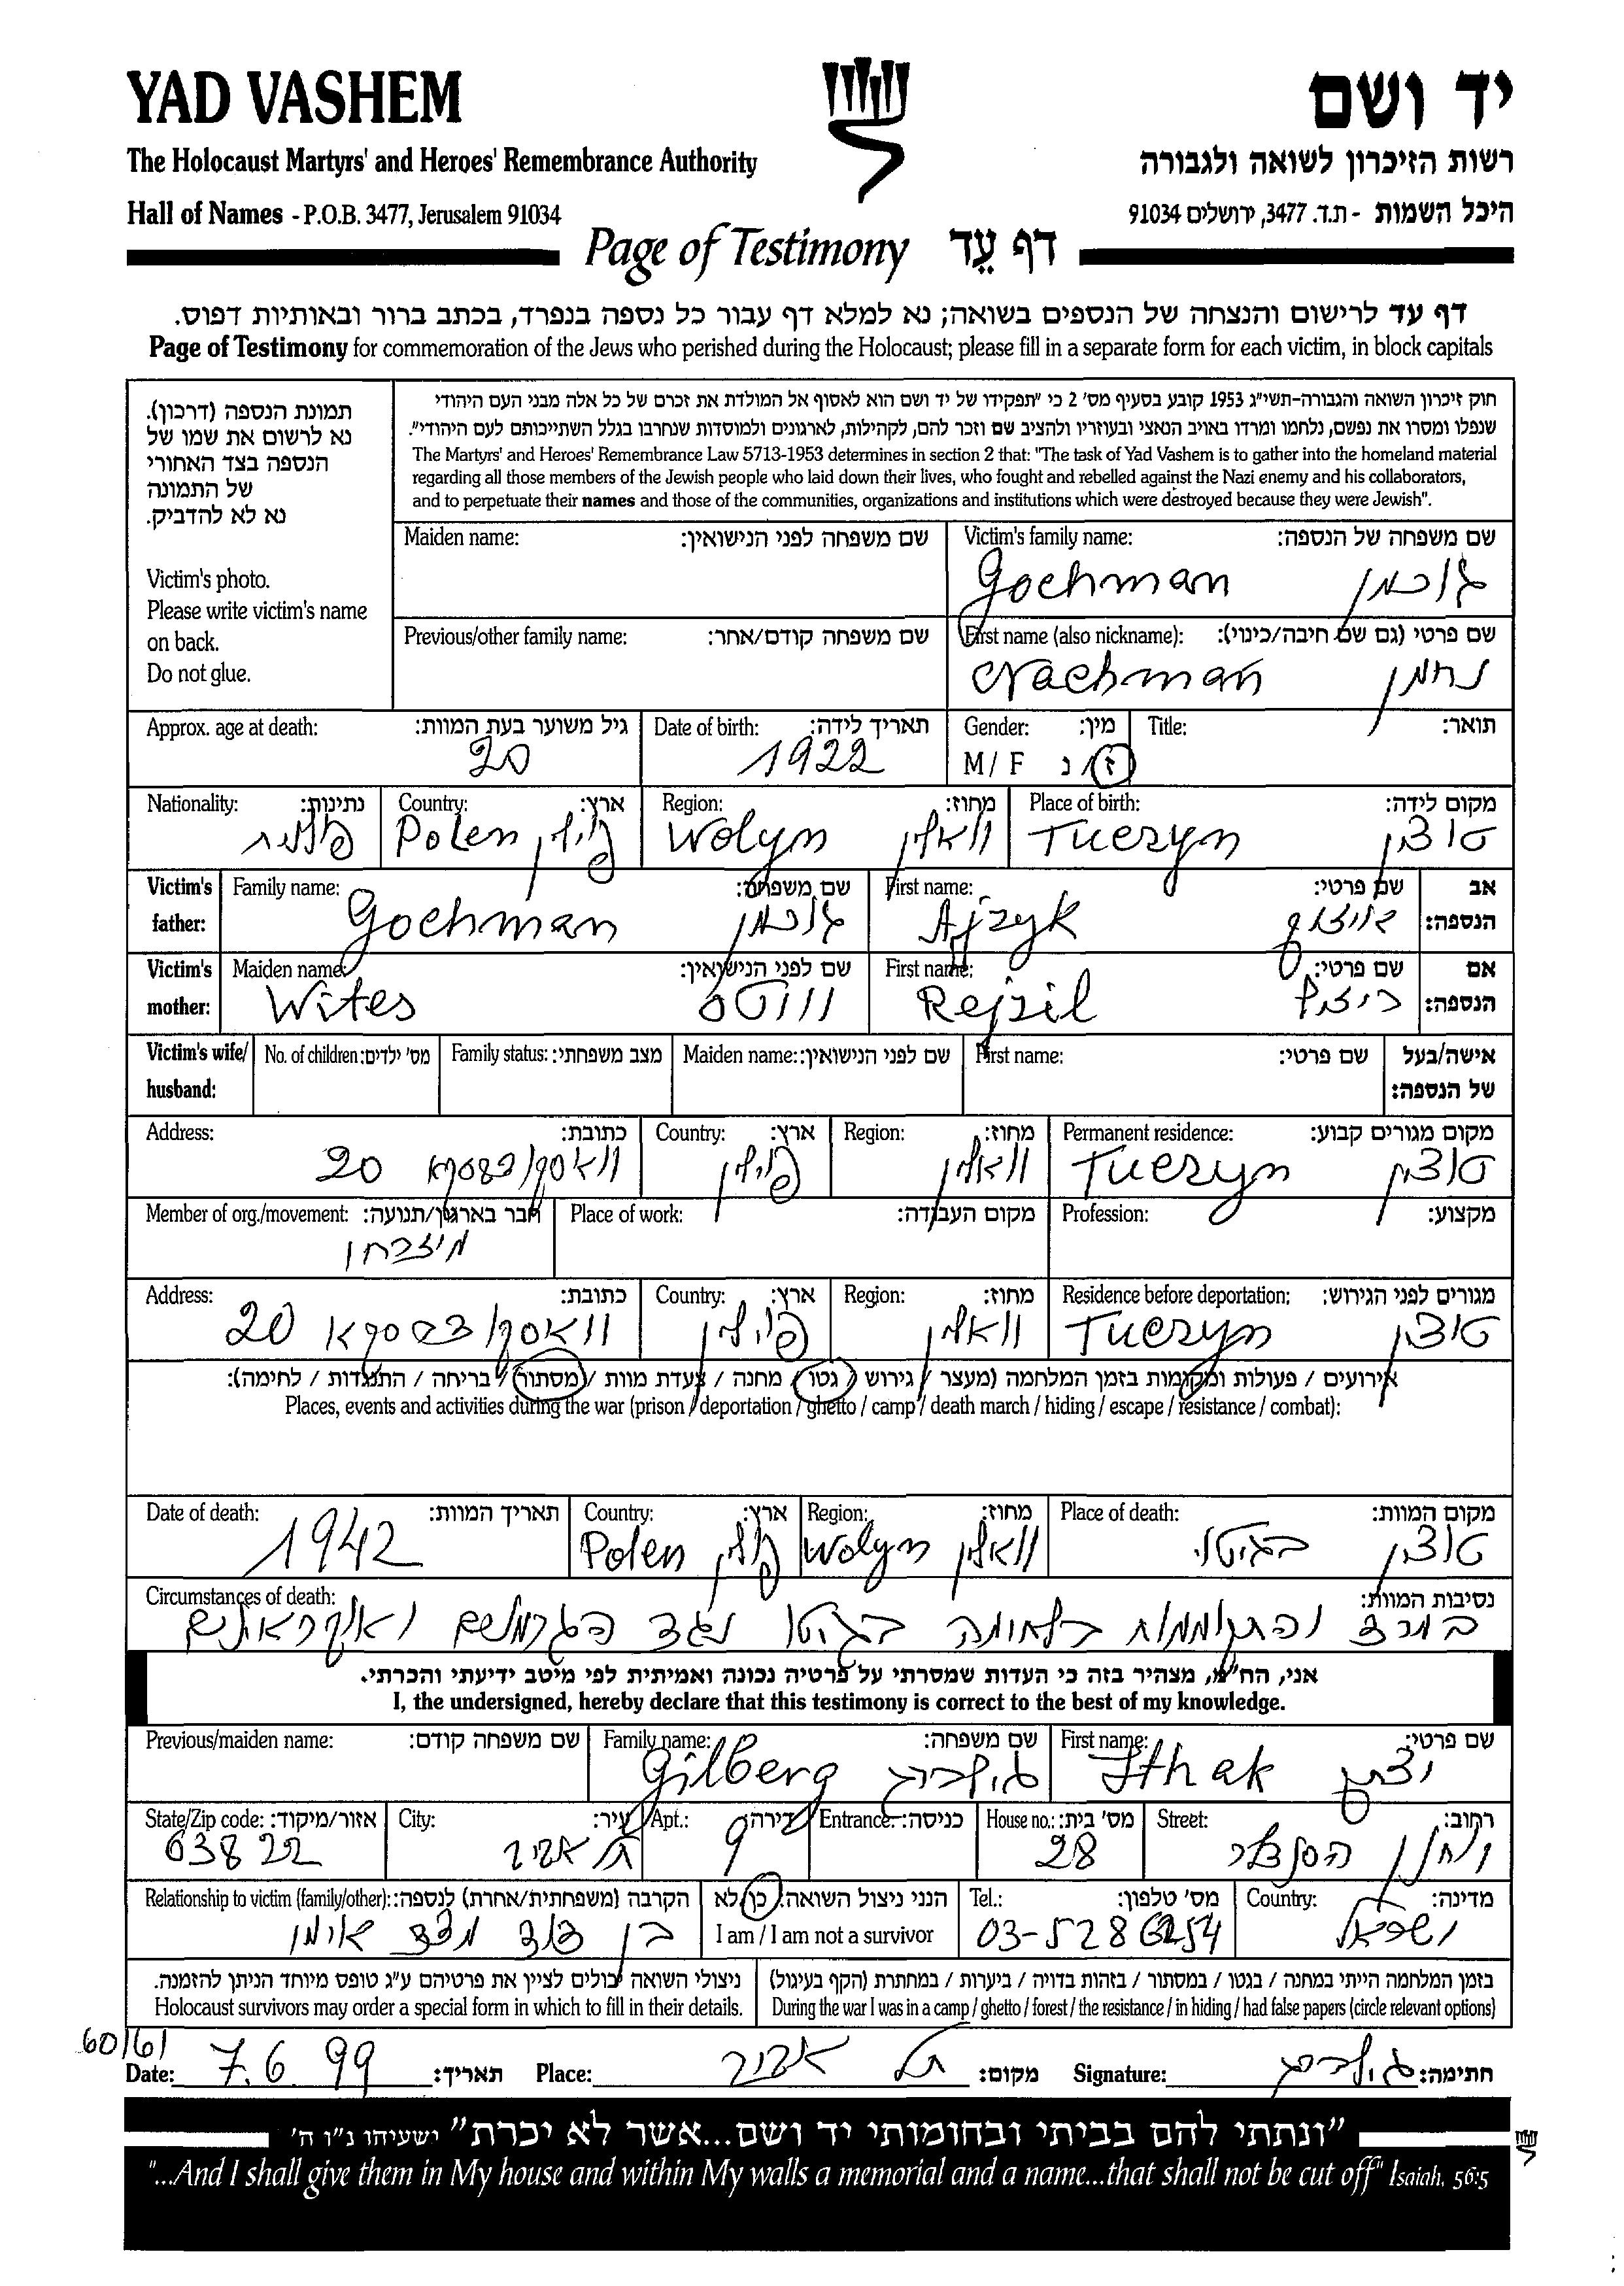 YAD VASHEM
יד ושם
The Holocaust Martyrs' and Heroes' Remembrance Authority
רשות הזיכרון לשואה ולגבורה
Hall of Names - P.O.B. 3477, Jerusalem 91034
היכל השמות - ת.ד. 3477, ירושלים 91034
Page of Testimony דף עֵד
דף עד לרישום והנצחה של הנספים בשואה; נא למלא דף עבור כל נספה בנפרד, בכתב ברור ובאותיות דפוס.
Page of Testimony for commemoration of the Jews who perished during the Holocaust; please fill in a separate form for each victim, in block capitals
תמונת הנספה (דרכון).
נא לרשום את שמו של
הנספה בצד האחורי
של התמונה
נא לא להדביק.
Victim's photo.
Please write victim's name
on back.
Do not glue.
חוק זיכרון השואה והגבורה-תשי"ג 1953 קובע בסעיף מס' 2 כי "תפקידו של יד ושם הוא לאסוף אל המולדת את זכרם של כל אלה מבני העם היהודי
שנפלו ומסרו את נפשם, נלחמו ומרדו באויב הנאצי ובעוזריו ולהציב שם וזכר להם, לקהילות, לארגונים ולמוסדות שנחרבו בגלל השתייכותם לעם היהודי".
The Martyrs' and Heroes' Remembrance Law 5713-1953 determines in section 2 that: "The task of Yad Vashem is to gather into the homeland material
regarding all those members of the Jewish people who laid down their lives, who fought and rebelled against the Nazi enemy and his collaborators,
and to perpetuate their names and those of the communities, organizations and institutions which were destroyed because they were Jewish".
Maiden name: שם משפחה לפני הנישואין:
Victim's family name: שם משפחה של הנספה:
Gochman גוכמן
Previous/other family name: שם משפחה קודם/אחר:
First name (also nickname): שם פרטי (גם שם חיבה/כינוי):
Nachman נחמן
Approx. age at death: גיל משוער בעת המוות:
20
Date of birth: תאריך לידה:
1922
Gender: מין:
M / F ז / נ
Title: תואר:
Nationality: נתינות:
פולנית
Country: ארץ:
Polen פוילין
Region: מחוז:
Wolyn וואלין
Place of birth: מקום לידה:
Tuczyn טוצין
Victim's father: Family name: שם משפחה:
Gochman גוכמן
First name: שם פרטי: אב הנספה:
Ajzyk אייזיק
Victim's mother: Maiden name: שם לפני הנישואין:
Wites וויטס
First name: שם פרטי: אם הנספה:
Rejzil רייזיל
Victim's wife/ husband: No. of children: מס' ילדים: Family status: מצב משפחתי: Maiden name: שם לפני הנישואין: First name: שם פרטי: אישה/בעל של הנספה:
Address: כתובת:
20
Country: ארץ:
פוילין
Region: מחוז:
וואלין
Permanent residence: מקום מגורים קבוע:
Tuczyn טוצין
Member of org./movement: חבר בארגון/תנועה:
מיזרחי
Place of work: מקום העבודה:
Profession: מקצוע:
Address: כתובת:
20
Country: ארץ:
פוילין
Region: מחוז:
וואלין
Residence before deportation: מגורים לפני הגירוש:
Tuczyn טוצין
אירועים / פעולות ומקומות בזמן המלחמה (מעצר / גירוש / גטו / מחנה / צעדת מוות / מסתור / בריחה / התנגדות / לחימה):
Places, events and activities during the war (prison / deportation / ghetto / camp / death march / hiding / escape / resistance / combat):
Date of death: תאריך המוות:
1942
Country: ארץ:
Polen פולין
Region: מחוז:
Wolyn וואלין
Place of death: מקום המוות:
טוצין בגיטו
Circumstances of death: נסיבות המוות:
במרד והתקוממות בלחימה בגיטו נגד הגרמנים ואוקראינים
אני, הח"מ, מצהיר בזה כי העדות שמסרתי על פרטיה נכונה ואמיתית לפי מיטב ידיעתי והכרתי.
I, the undersigned, hereby declare that this testimony is correct to the best of my knowledge.
Previous/maiden name: שם משפחה קודם:
Family name: שם משפחה:
Gilberg גילברג
First name: שם פרטי:
Ithak יצחק
State/Zip code: אזור/מיקוד:
63822
City: עיר:
תל אביב
Apt.: דירה:
9
Entrance: כניסה:
House no.: מס' בית:
28
Street: רחוב:
יוחנן הסנדלר
Relationship to victim (family/other): הקרבה (משפחתית/אחרת) לנספה:
בן דוד מצד אימו
הנני ניצול השואה: כן/לא
I am / I am not a survivor
Tel.: מס' טלפון:
03-5286254
Country: מדינה:
ישראל
ניצולי השואה יכולים לציין את פרטיהם ע"ג טופס מיוחד הניתן להזמנה.
Holocaust survivors may order a special form in which to fill in their details.
בזמן המלחמה הייתי במחנה / בגטו / במסתור / בזהות בדויה / ביערות / במחתרת (הקף בעיגול)
During the war I was in a camp / ghetto / forest / the resistance / in hiding / had false papers (circle relevant options)
Date: 7.6 99 תאריך: Place: תל אביב מקום: Signature: גילברג חתימה:
"ונתתי להם בביתי ובחומותי יד ושם...אשר לא יכרת" ישעיהו נ"ו ה'
"...And I shall give them in My house and within My walls a memorial and a name...that shall not be cut off" Isaiah, 56:5